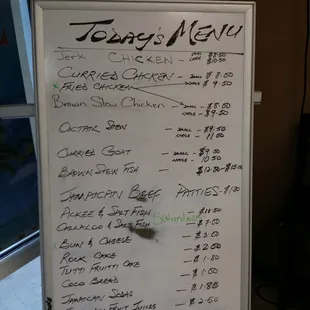 TODAY'S MENU
JERK CHICKEN — SMALL $8.50
LARGE $10.50
CURRIED CHICKEN — SMALL $8.50
FRIED CHICKEN LARGE $9.50
BROWN STEW CHICKEN — SMALL $8.50
LARGE $9.50
OXTAIL STEW SMALL $9.50
LARGE 11.00
CURRIED GOAT — SMALL $9
LARGE 10.50
BROWN STEW FISH —
JAMAICAN BEEF PATTIES
ACKEE & SALT FISH
CALLALOO & SALT FISH — $7.00
BUN & CHEESE — $3.00
ROCK CAKE — $2.50
TUTTI FRUITTI CAKE — 1.80
COCO BREAD — $1.00
JAMAICAN SODAS
FRUIT JUICES — $2.50